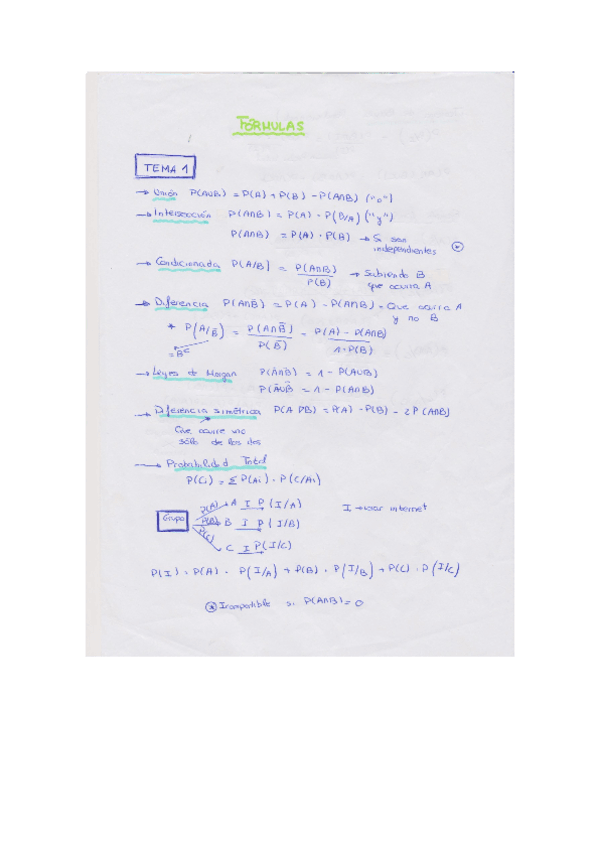 FÓRMULAS
TEMA 1
→ Unión P(A∪B) = P(A) + P(B) - P(A∩B) ("o")
→ Intersección P(A∩B) = P(A) · P(B/A) ("y")
P(A∩B) = P(A) · P(B) → Si son independientes (*)
→ Condicionada P(A/B) = P(A∩B) / P(B) → Sabiendo B que ocurra A
→ Diferencia P(A∩B̄) = P(A) - P(A∩B) = Que ocurra A y no B
* P(A/B̄) = P(A∩B̄) / P(B̄) = P(A) - P(A∩B) / 1-P(B)
=Bᶜ
→ Leyes de Morgan P(Ā∩B̄) = 1 - P(A∪B)
P(Ā∪B̄ = 1 - P(A∩B)
→ Diferencia simétrica P(A B) = P(A) · P(B) - 2P(A∩B)
Que ocurre uno sólo de los dos
→ Probabilidad Total
P(Ci) = Σ P(Ai) · P(C/Ai)
Grupo
P(A) A I P(I/A) I → usar internet
P(B) B I P(I/B)
P(C) C I P(I/C)
P(I) = P(A) · P(I/A) + P(B) · P(I/B) + P(C) · P(I/C)
(*) Incompatible si P(A∩B) = 0